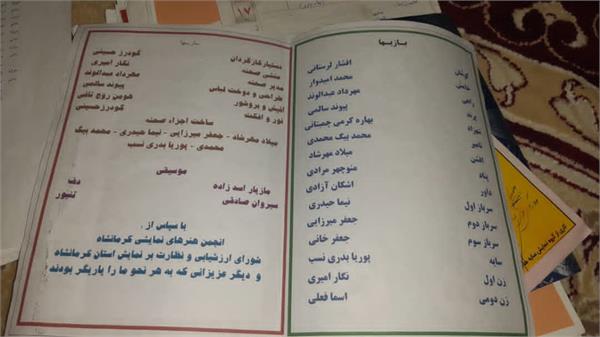 بازیها
افشار لرستانی
محمد امیدوار
مهرداد عبدالوند
پیوند سالمی
بهاره کرمی چمبتانی
محمد بیک محمدی
میلاد مهرشاد
منوچهر مرادی پناه
اشکان آزادی داور
نیما حیدری سرباز اول
جعفر میرزایی سرباز دوم
جعفر خانی سرباز سوم
پوریا بدری نسب سایه
نگار امیری زن اول
اسما فعلی زن دومی
دستیار کارگردان گودرز حسینی
منشی صحنه نگار امیری
مدیر صحنه مهرداد عبدالوند
طراحی و دوخت لباس پیوند سالمی
افیش و بروشور هومن روح تافی
نور و افکت گودرز حسینی
ساخت اجزاء صحنه
میلاد مهرشاد - جعفر میرزایی - نیما حیدری - محمد بیک
محمدی - پوریا بدری نسب
موسیقی
مازیار اسد زاده دف
سیروان صادقی تنبور
با سپاس از .
انجمن هنرهای نمایشی کرمانشاه
شورای ارزشیابی و نظارت بر نمایش استان کرمانشاه
و دیگر عزیزانی که به هر نحو ما را یاریگر بودند
۱۷